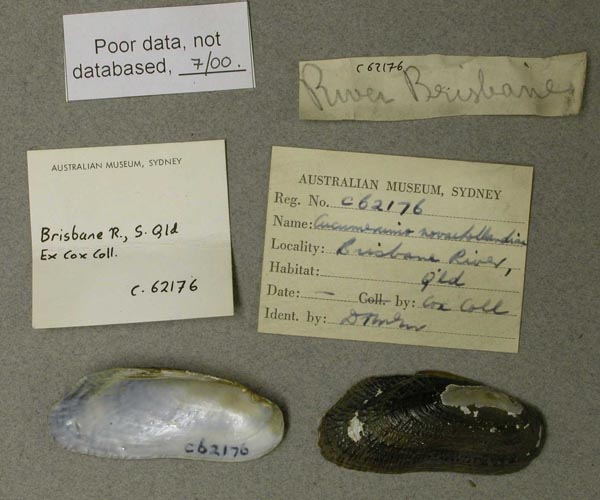 Poor data, not
databased, 7/00.
C 62176
River Brisbane
AUSTRALIAN MUSEUM, SYDNEY
Brisbane R., S. Qld
Ex Cox Coll.
C. 62176
AUSTRALIAN MUSEUM, SYDNEY
Reg. No. C62176
Name: Cucumerunio novaehollandiae
Locality: Brisbane River,
Habitat: Q'ld
Date: — Coll. by: Cox Coll
Ident. by:
C62176